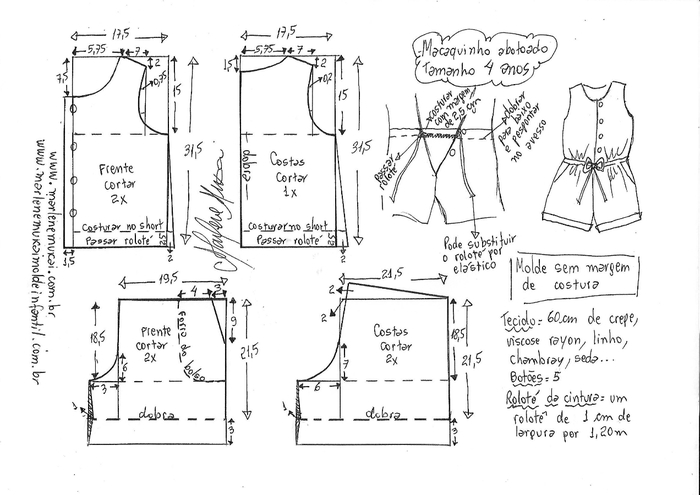 Macaquinho abotoado
Tamanho 4 anos
17,5
5,75
7
2
7,5
0,75
15
31,5
Frente
cortar
2x
Costurar no short
Passar rolotê
1,5
2
17,5
5,75
7
2
1,5
0,2
15
31,5
dobra
Costas
cortar
1x
Costurar no short
Passar rolotê
2
costurar
com margem
de 2,5 cm
dobrar
para baixo
e pespontar
no avesso
Passar
rolotê
Pode substituir
o rolotê por
elástico
www.marlenemukai.com.br
www.marlenemukaimoldeinfantil.com.br
Marlene Mukai
19,5
4
3
9
18,5
21,5
Frente
cortar
2x
Fundo do bolso
6
3
1
dobra
3
21,5
2
2
18,5
21,5
Costas
cortar
2x
7
6
1
dobra
3
Molde sem margem
de costura
Tecido = 60cm de crepe,
viscose rayon, linho,
chambray, seda...
Botões = 5
Rolotê da cintura = um
rolotê de 1 cm de
largura por 1,20m